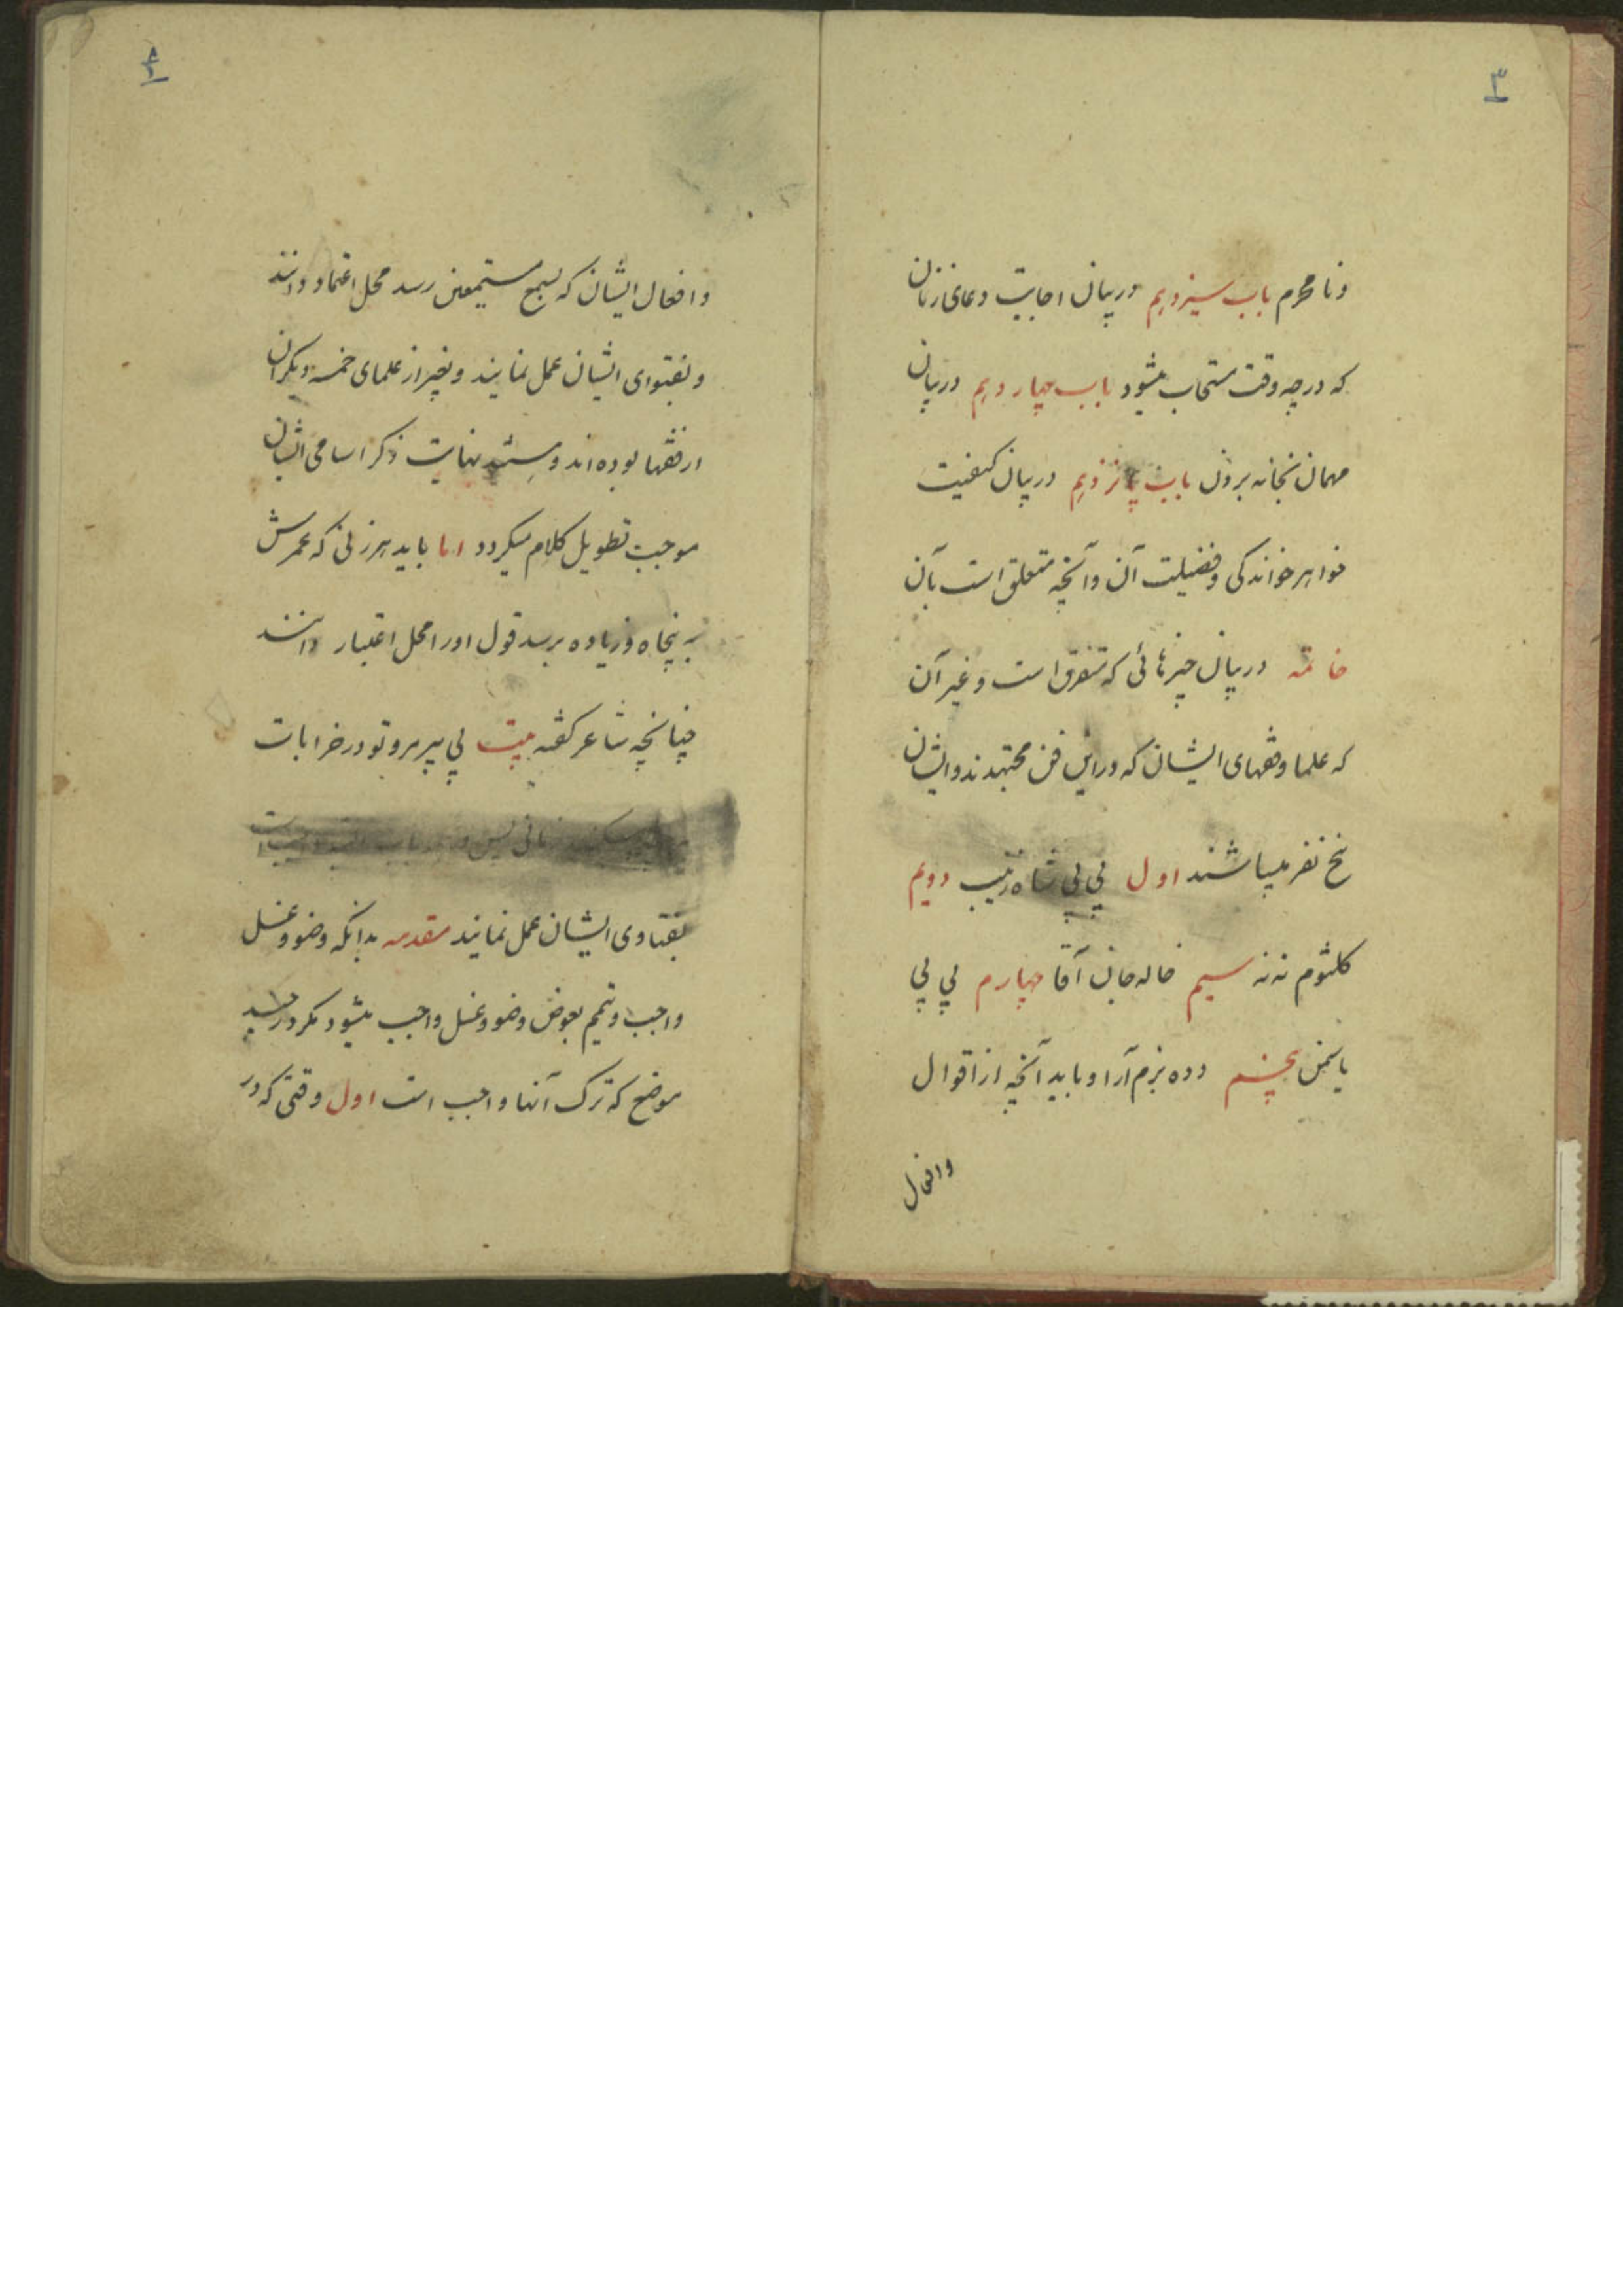 ۳
ونامحرم باب سیزدهم در بیان اجابت دعای زنان
که در چه وقت مستجاب میشود باب چهاردهم در بیان
مهمان بخانه بردن باب پانزدهم در بیان کیفیت
خواهر خواندگی و فضیلت آن و آنچه متعلق است بآن
خاتمه در بیان چیزهائی که متفرق است و غیر آن
که علما و فقهای ایشان که در این فن مجتهدند و ایشان
پنج نفر میباشند اول بی بی شاه زینب دویم
کلثوم ننه سیم خاله جان آقا چهارم بی بی
یاسمن پنجم دده بزم آرا و باید آنچه از اقوال
وافعال
۴
وافعال ایشان که بسمع مستمعین رسد محل اعتماد دانند
و بفتوای ایشان عمل نمایند و بغیر از علمای خمسه دیگران
از فقها بوده اند و نهایت ذکر اسامی ایشان
موجب تطویل کلام میگردد اما باید هر زنی که عمرش
به پنجاه و زیاده برسد قول او را محل اعتبار دانند
چنانچه شاعر گفته بیت بی پیر مرو تو در خرابات
هر چند سکندر زمانی پس
بفتاوی ایشان عمل نمایند مقدمه بدانکه وضو و غسل
واجب و تیمم بعوض وضو و غسل واجب میشود مگر در چند
موضع که ترک آنها واجب است اول وقتی که در